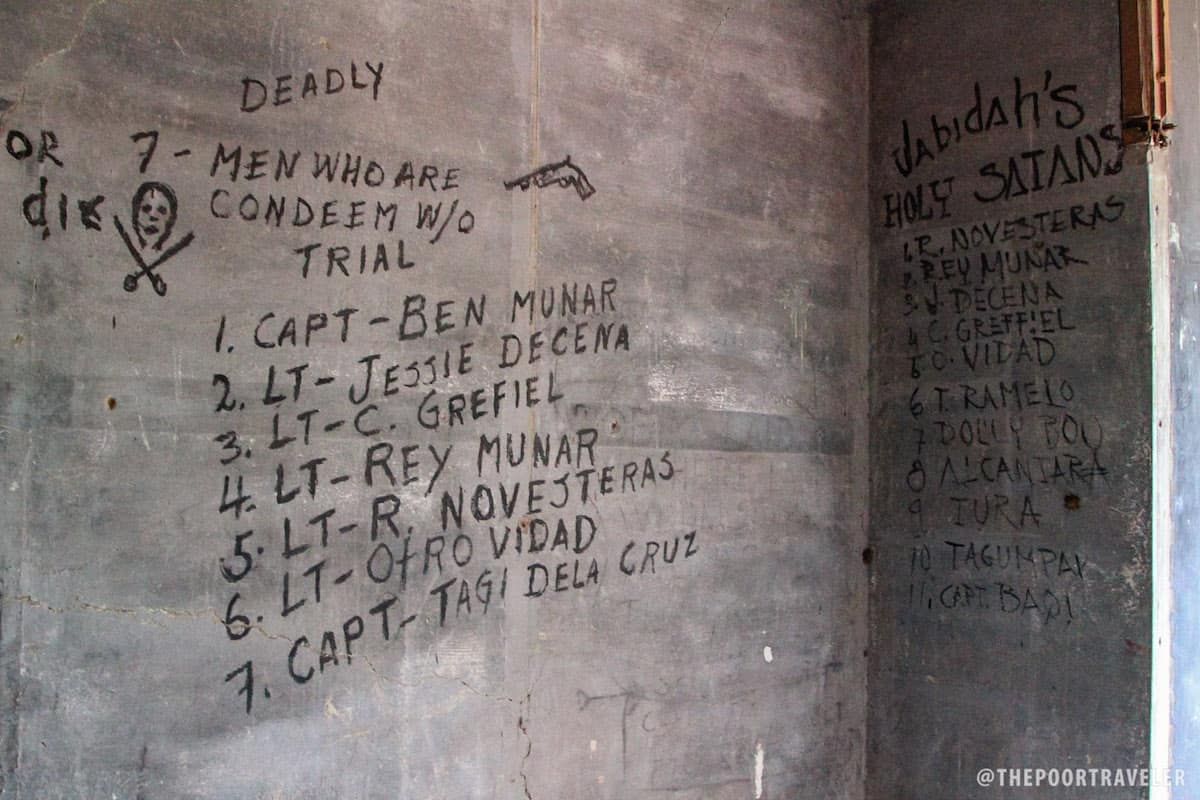 DEADLY
OR 7 - MEN WHO ARE
CONDEEM W/O
TRIAL
1. CAPT - BEN MUNAR
2. LT - JESSIE DECENA
3. LT - C. GREFIEL
4. LT - REY MUNAR
5. LT - R. NOVESTERAS
6. LT - OTRO VIDAD
7. CAPT - TAGI DELA CRUZ
Jabidah's
HOLY SATANS
1. R. NOVESTERAS
2. REY MUNAR
3. J. DECENA
4 C. GREFFIEL
5 O. VIDAD
6 T. RAMELO
7 DOLLY
8 ALCANTARA
9 TURA
10 TAGUMPAY
11. CAPT.
@THEPOORTRAVELER